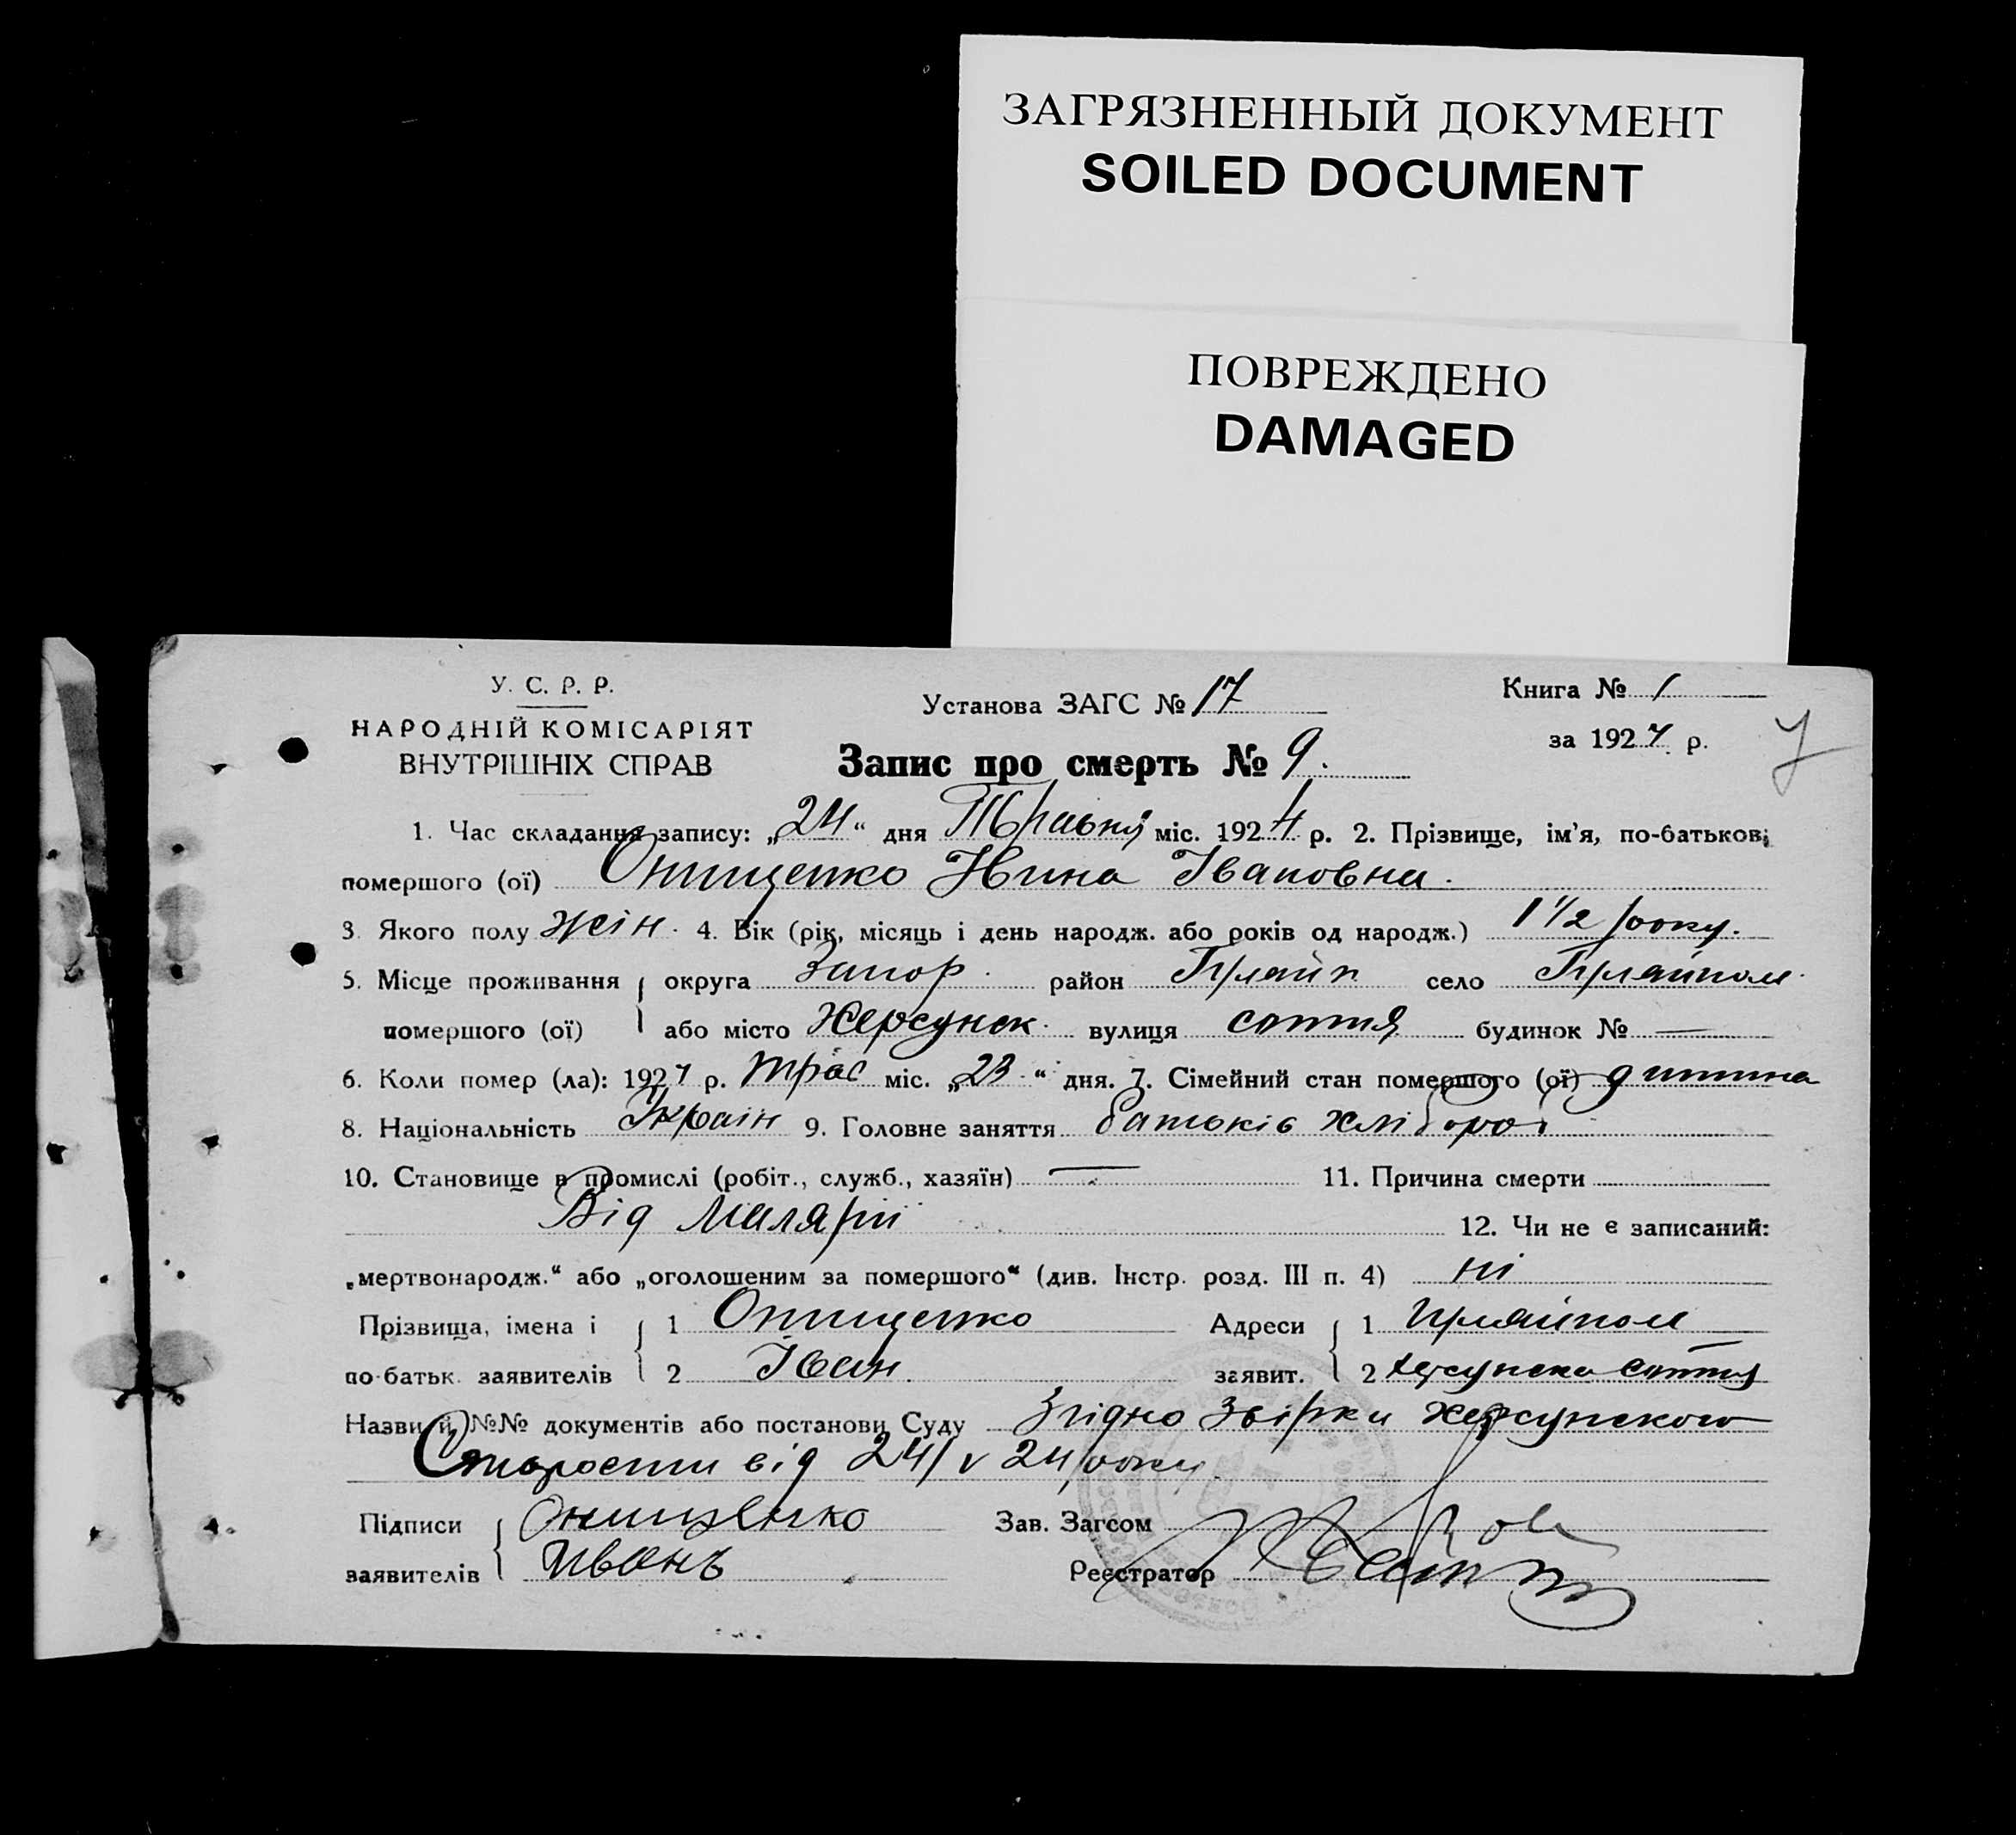 ЗАГРЯЗНЕННЫЙ ДОКУМЕНТ
SOILED DOCUMENT
ПОВРЕЖДЕНО
DAMAGED
У. С. Р. Р.
НАРОДНІЙ КОМІСАРІЯТ
ВНУТРІШНІХ СПРАВ
Установа ЗАГС № 17
Книга № 1
за 1924 р.
Запис про смерть № 9.
1. Час складання запису: „24“ дня Травня міс. 1924 р. 2. Прізвище, ім'я, по-батькові
помершого (ої) Онищенко Нина Івановна.
3. Якого полу жін. 4. Вік (рік, місяць і день народж. або років од народж.) 1 1/2 року.
5. Місце проживання округа Запор. район Гуляйп село Гуляйполе
помершого (ої) або місто Херсунск. вулиця сотня будинок № —
6. Коли помер (ла): 1924 р. Трав міс. „23“ дня. 7. Сімейний стан помершого (ої) дитина
8. Національність Україн 9. Головне заняття батьків хлібороб
10. Становище в промислі (робіт., служб., хазяїн) — 11. Причина смерти
Від Малярії 12. Чи не є записаний:
„мертвонародж.“ або „оголошеним за помершого“ (див. Інстр. розд. III п. 4) ні
Прізвища, імена і 1 Онищенко Адреси 1 Гуляйполе
по-батьк. заявителів 2 Іван. заявит. 2 Херсунска сотня
Назви й №№ документів або постанови Суду Згідно Звірки Херсунского
Старости від 24/V 24 року.
Підписи Онищенко Зав. Загсом
заявителів Иванъ Реєстратор